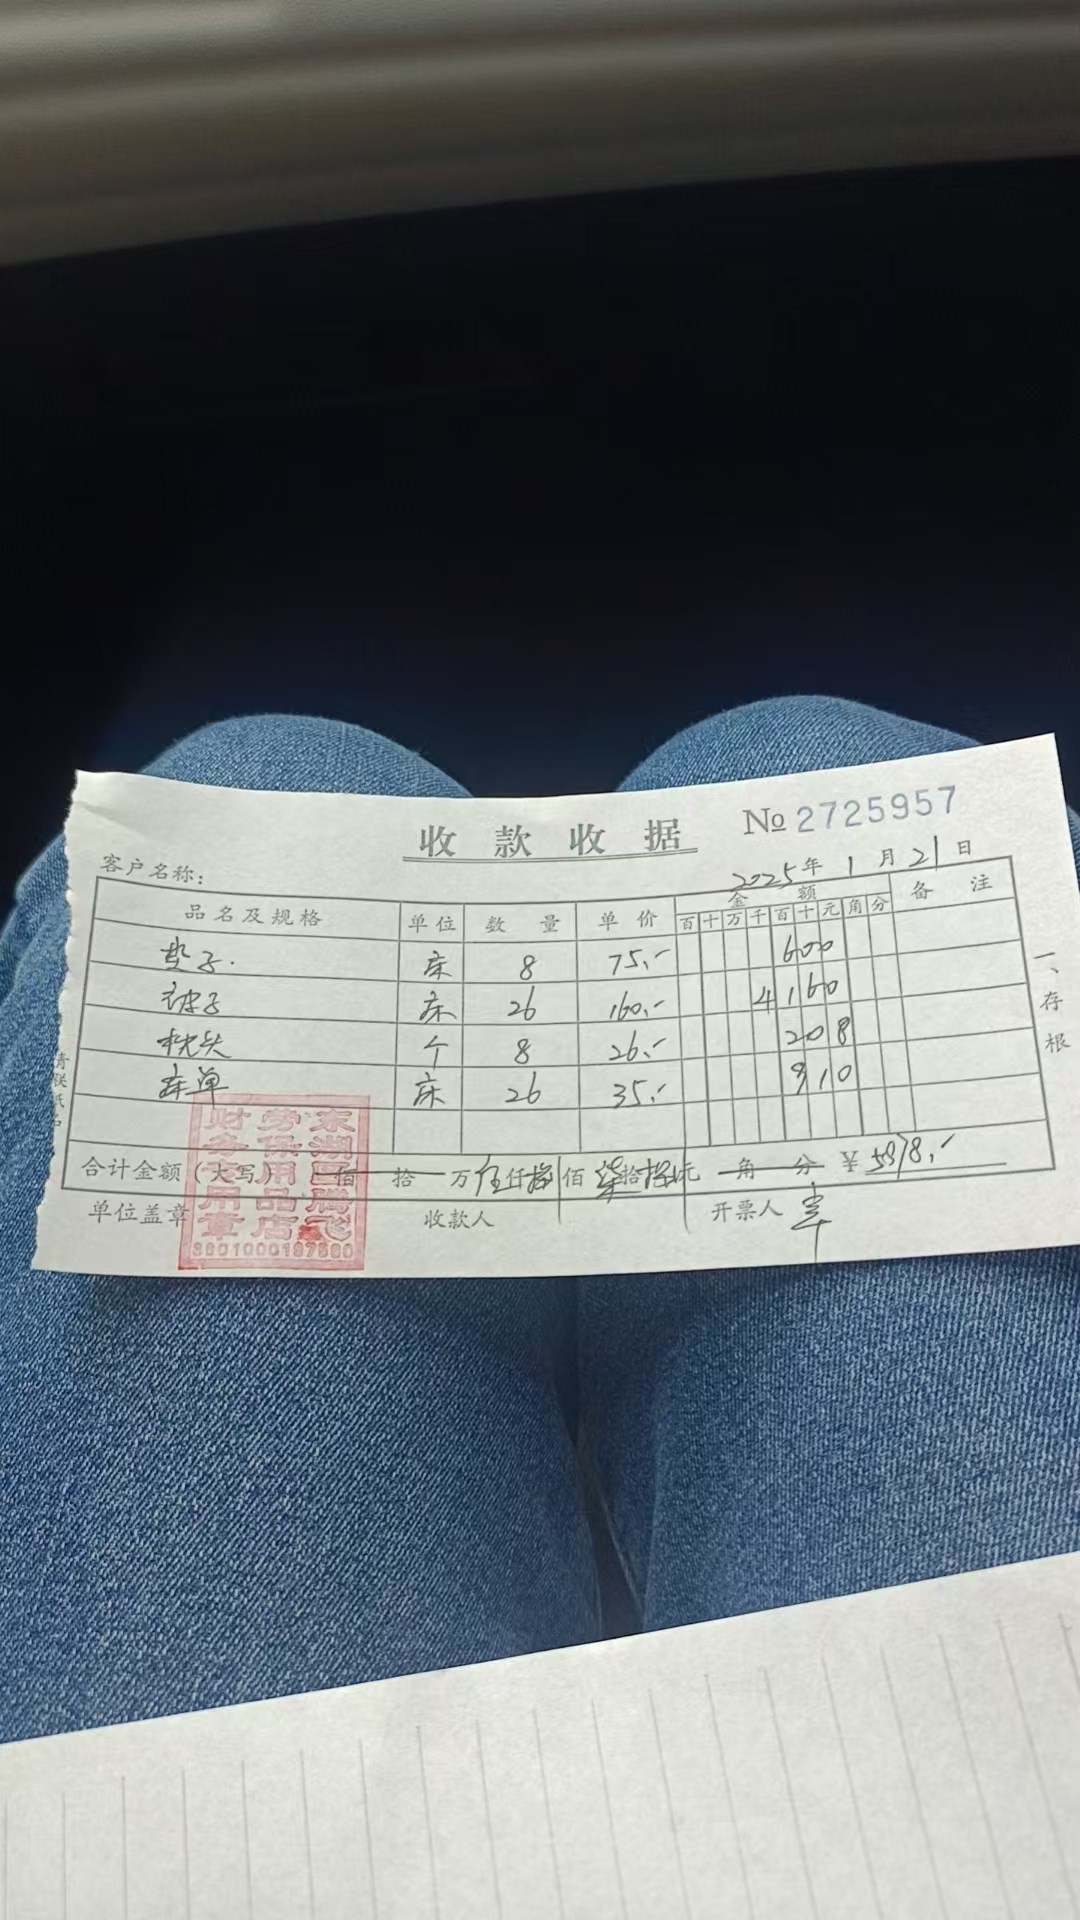 收款收据 № 2725957
客户名称: 2025年 1月 21日
品名及规格 单位 数量 单价 金额 备注
百 十 万 千 百 十 元 角 分
垫子. 床 8 75.- 600
被子 床 26 160.- 4160
枕头 个 8 26.- 208
床单 床 26 35.- 910
合计金额(大写) 佰 拾 万 伍仟 佰 柒拾 元 角 分 ¥ 5878.-
单位盖章 收款人 开票人
一、存根
东湖区腾飞
劳保用品店
财务专用章